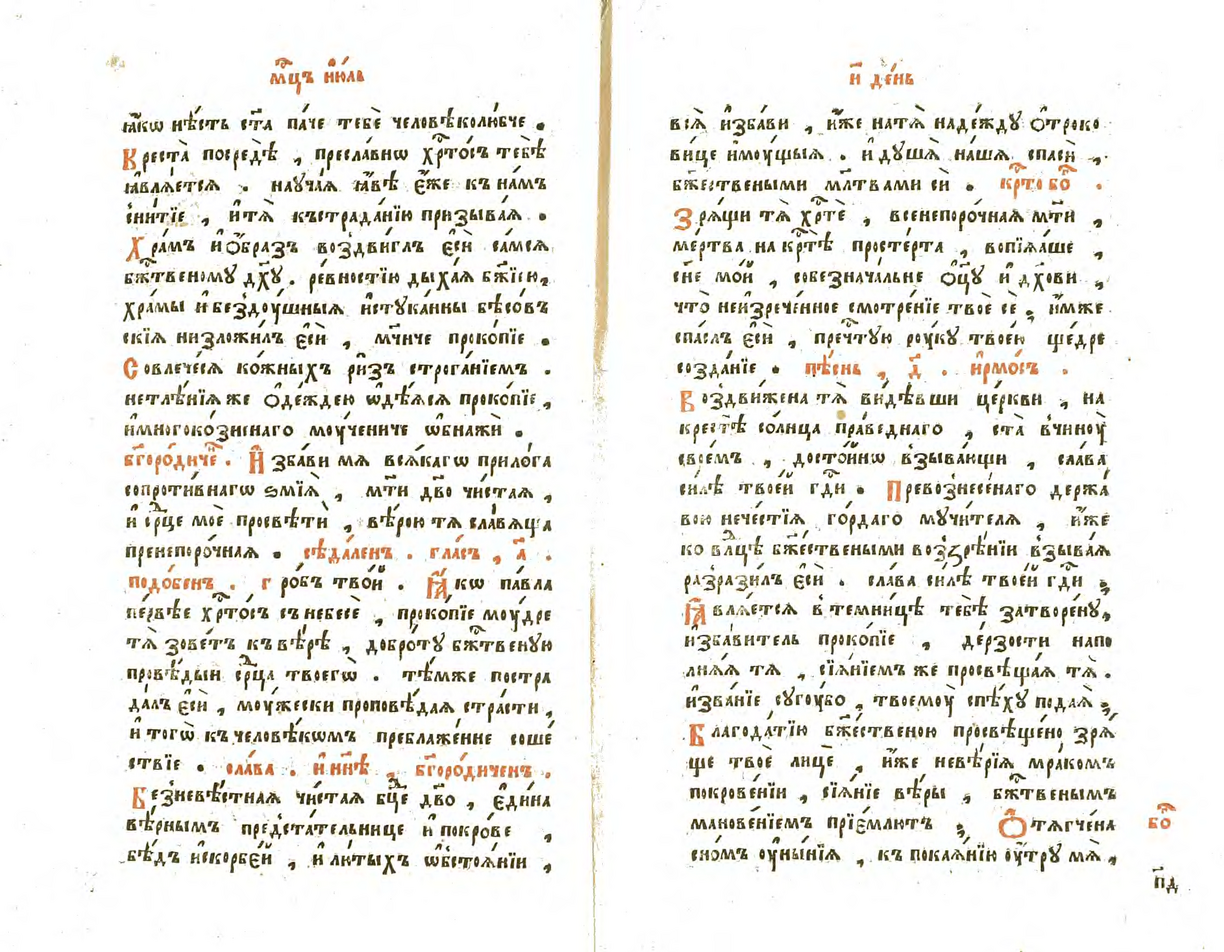 мⷭ҇цъ і҆ю́ль
ꙗ҆́кѡ нѣ́сть ст҃а па́че тебѐ человѣколю́бче .
Крⷭ҇та̀ посредѣ̀ , пресла́внѡ хрⷭ҇то́съ тебѣ̀
ꙗ҆влѧ́етсѧ . науча́ѧ ꙗ҆́вѣ є҆́же къ на́мъ
сни́тїе , и҆ тѧ̀ къстрада́нїю призыва́ѧ .
Хра́мъ и҆ ѻ҆́бразъ воздви́глъ є҆сѝ са́мсѧ
бжⷭ҇твеному дх҃у . ре́вностїю дыха́ѧ бж҃їею,
хра́мы и҆ бездꙋ́шныѧ и҆стука́нны бѣсо́въ
скїѧ низложи́лъ є҆сѝ , мч҃ниче проко́пїе .
Совлече́сѧ ко́жныхъ ри́зъ строга́нїемъ .
нетлѣ́нїѧ же ѻ҆де́ждею ѡ҆дѣ́ѧсѧ проко́пїе ,
и҆многоко́зненаго моу́чениче ѡ҆бнажѝ .
бг҃оро́диченъ . И҆зба́ви мѧ всѧ́кагѡ прило́га
сопроти́внагѡ ѕмїѧ̀ , мт҃и дв҃о чи́стаѧ ,
и҆ срⷣце моѐ просвѣтѝ , вѣ́рою тѧ сла́вѧща
пренепоро́чнаѧ . сѣда́ленъ . гла́съ , а҃ .
подо́бенъ . гро́бъ тво́й . Ꙗ҆́кѡ па́вла
пе́рвѣе хрⷭ҇то́съ съ небесѐ , проко́пїе моу́дре
тѧ̀ зове́тъ къ вѣ́рѣ , добро́ту бжⷭ҇твеную
провѣ́дыи срⷣца твоегѡ̀ . тѣ́мже постра
да́лъ є҆сѝ , моу́жески проповѣ́даѧ стра́сти ,
и҆ тогѡ̀ къ человѣ́кѡмъ преблаже́нне соше
ствїе . сла́ва . и҆ ны́нѣ , бг҃оро́диченъ .
Безневѣ́стнаѧ чи́стаѧ бц҃е дв҃о , є҆ди́на
вѣ́рнымъ предста́тельнице и҆ покро́ве ,
бѣ́дъ и҆ скорбе́й , и҆ лю́тыхъ ѡ҆бстоѧ́нїи ,
и҃ де́нь
всѧ̀ и҆зба́ви , и҆́же натѧ̀ наде́жду ѻ҆троко
ви́це и҆моу́щыѧ . и҆ душѧ̀ на́шѧ спасѝ ,
бже́ствеными мл҃твами сѝ . крⷭ҇то бо҃ .
Зрѧ́щи тѧ хрⷭ҇тѐ , всенепоро́чнаѧ мт҃и ,
ме́ртва на крⷭ҇тѣ̀ просте́рта , вопїѧ́ше ,
сн҃е мо́й , собезнача́льне ѻ҆ц҃у и҆ дх҃ови ,
что̀ неизрече́нное смотре́нїе твоѐ сѐ ; и҆́мже
спа́слъ є҆сѝ , пречтⷭ҇ую роу́ку твое́ю ще́дре
созда́нїе . пѣ́снь , д҃ . і҆рмо́съ .
Воздви́жена тѧ ви́дѣвши це́ркви , на
кре́стѣ со́лнца пра́веднаго , ста̀ в чи́ноу
свое́мъ , досто́йнѡ взыва́ющи , сла́ва
си́лѣ твое́й гдⷭ҇и . Превознесе́наго держа́
вою нече́стїѧ го́рдаго мучи́телѧ , и҆́же
ко влⷣцѣ бже́ствеными воззрѣ́нїи взыва́ѧ
разрази́лъ є҆сѝ . сла́ва си́лѣ твое́й гдⷭ҇и ;
Ꙗ҆влѧ́етсѧ в темни́цѣ тебѣ̀ затворе́ну,
и҆зба́витель проко́пїе , де́рзости напо
лнѧ́ѧ тѧ , сїѧ́нїемъ же просвѣща́ѧ тѧ̀ .
и҆зва́нїе сугоу́бо , твоемоу̀ спѣ́ху пода́ѧ ;
Благода́тїю бже́ственою просвѣще́но зрѧ́
ще твоѐ лицѐ , и҆́же невѣ́рїѧ мра́комъ
покрове́нїи , сїѧ́нїе вѣ́ры , бжⷭ҇твенымъ
манове́нїемъ прїе́млютъ ; Ѻ҆тѧгче́на
бо҃
сно́мъ оу҆ны́нїѧ , къ покаѧ́нїю оу҆́тру мѧ ,
пд҃